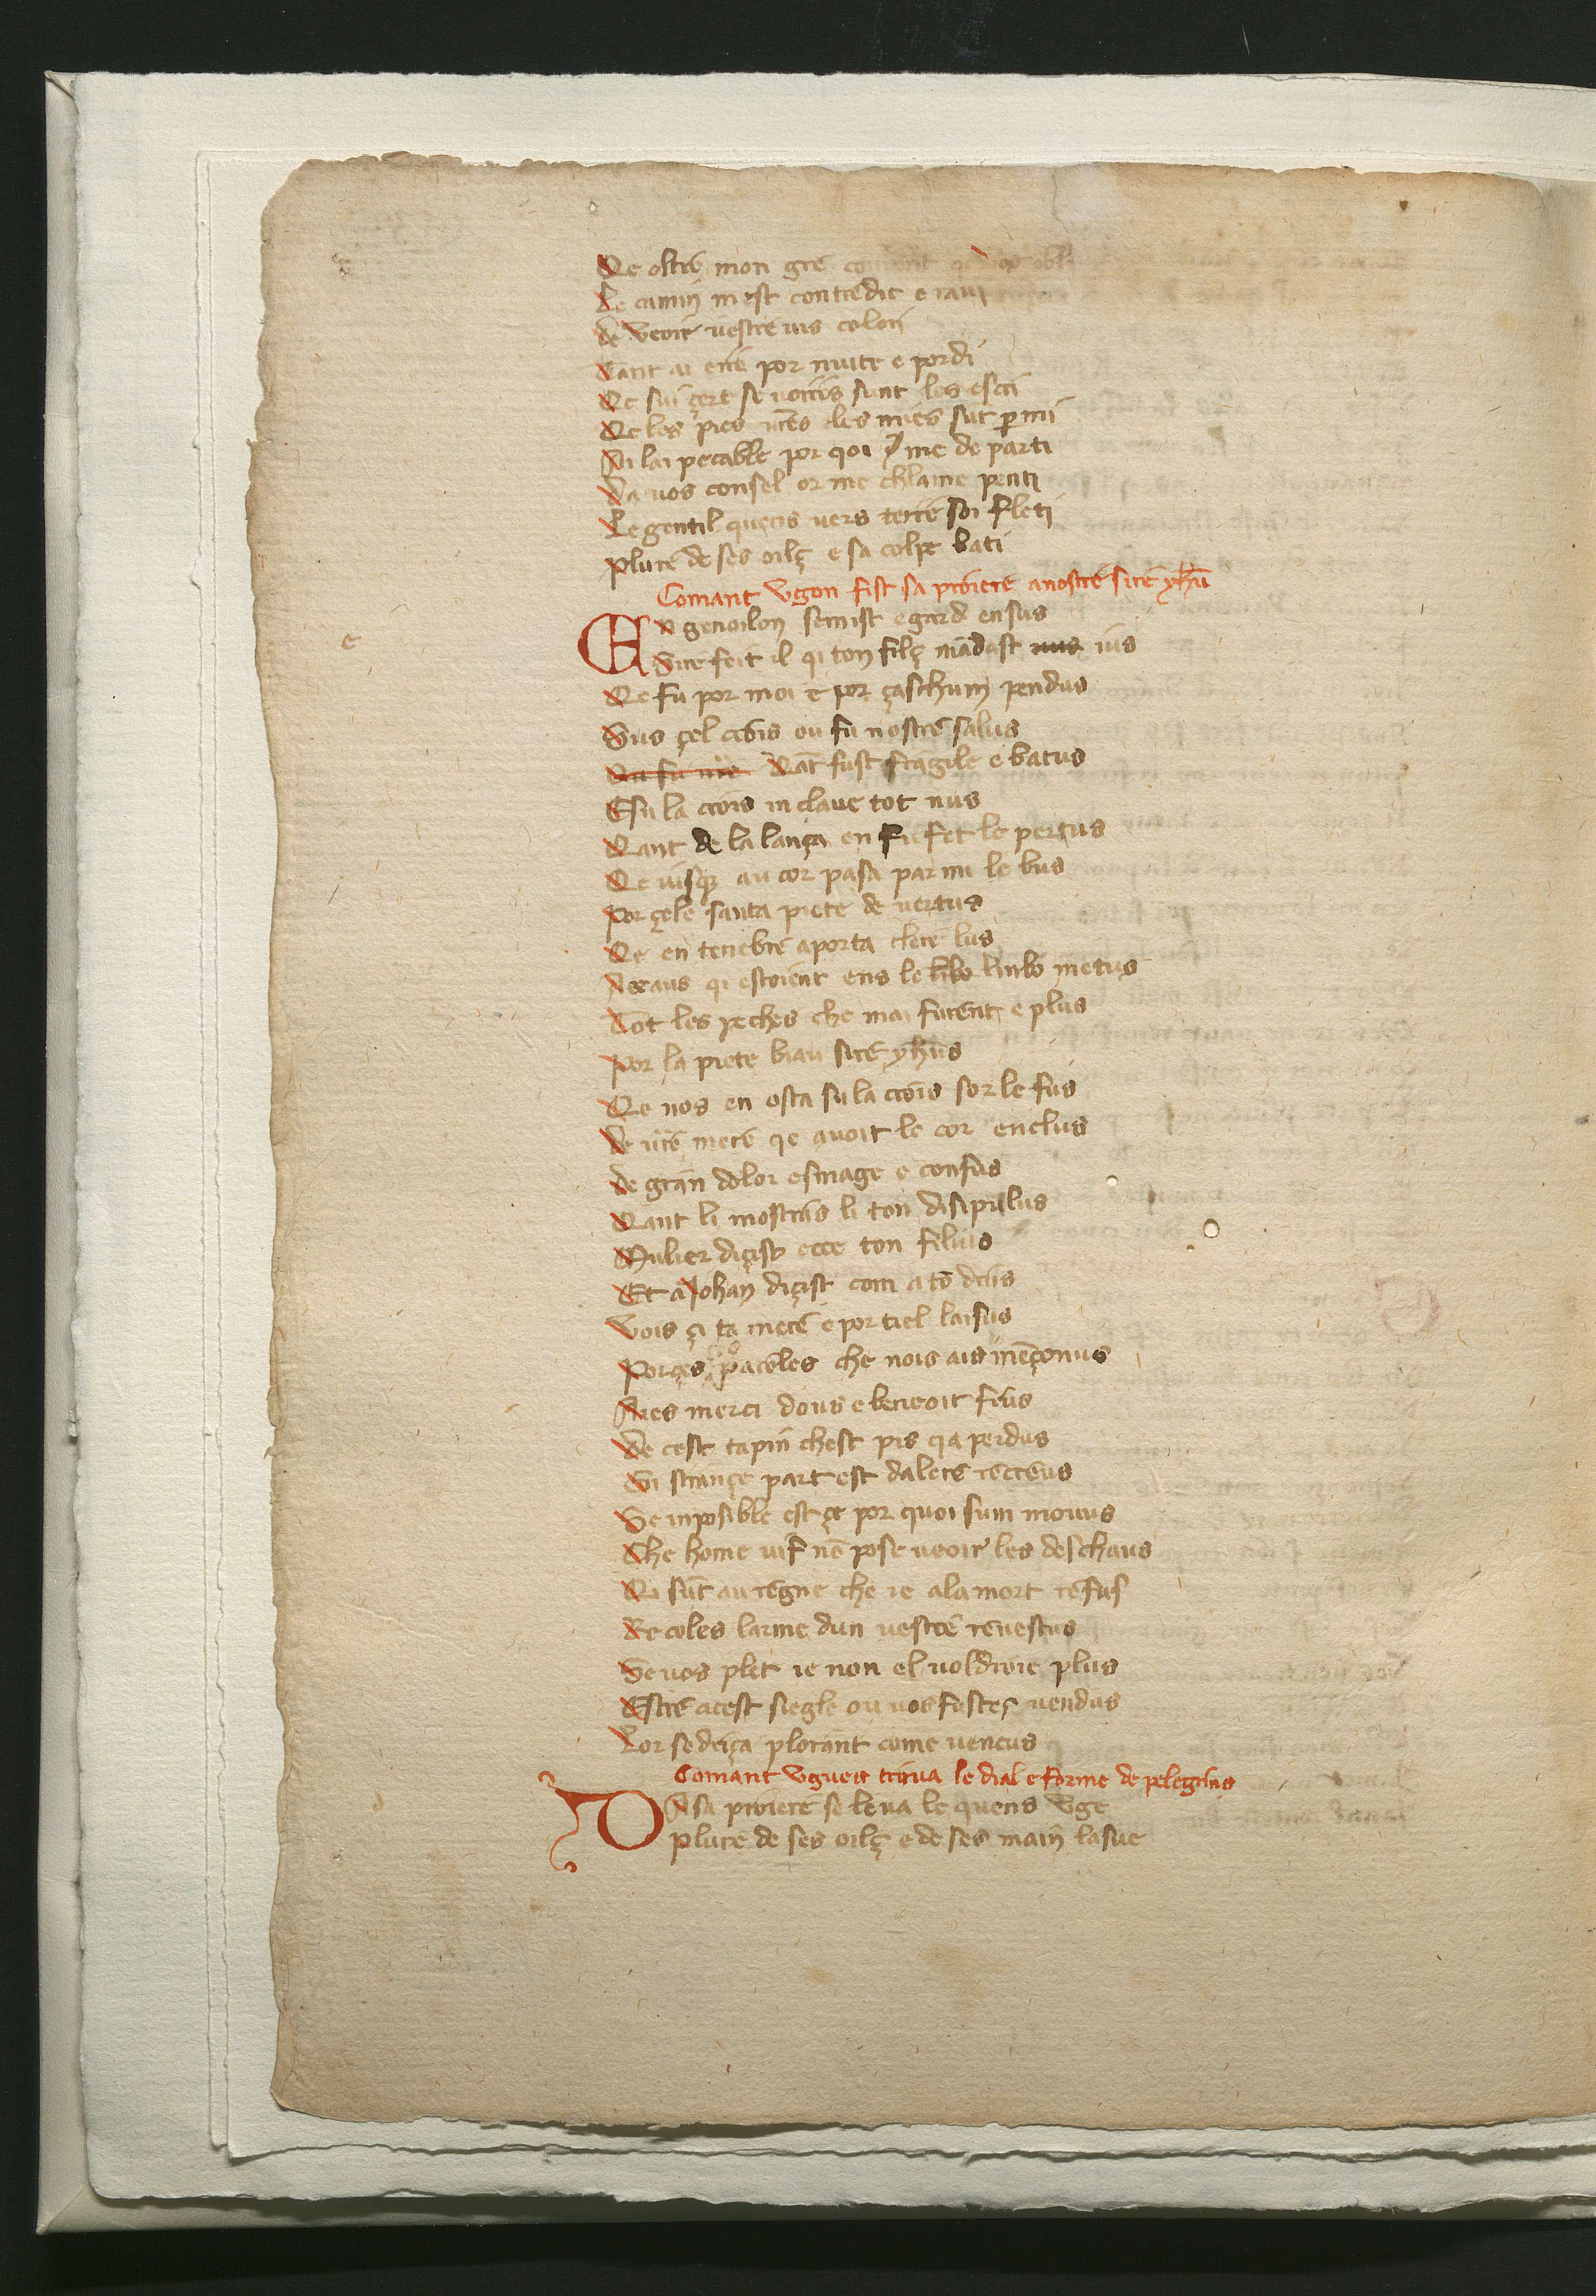 Qe oltre mon gre
Le camin mest contredit e
de veoir uestre uis colori
Tant ai erre por nuite e por di
Qe sui çert se uoirs sunt les escri
Qe les pies ures eles mies sut p mi
Ai lai pecable por qoi me de parti
Da uos consel or me chlame penti
Le gentil quens uers terre soi fleti
Plure de ses oilç e sa colpe bati
Comant Vgon fist sa proiere a nostre sire yhu
En genoilon se mist e garde en sus
Sire feit il qi ton filç mādast ius
Qe fu por moi e por çaschum pendus
Sus çel crois ou fu nostre salus
Qāt fust fragile e batus
E su la crois in claue tot nus
Qant de la lança en fu fet le pertus
Qe uisq au cor pasa par mi le bus
Por çele santa piete de uertus
Qe en tenebre aporta clere lus
A ceaus qi estoient ens le limbo metus
Tot les peches che mai furent e plus
Por la piete biau sire yhus
Qe nos en osta su la crois sor le fus
De ure mere qe auoit le cor enclus
De gran dolor esmage e confus
Qant li mostras li ton disipulus
Mulier diçist ecce ton filius
Et a Johan diçist com a tō drus
Vois çi ta mere e por tiel laisus
Por ces paroles che nois ais mēçonus
Aies merci dous e beneoit frus
De cest tapin chest pis qa perdus
En strançe part est dalere recreus
Se inposible est çe por quoi sum mouus
Che home uif nō pose ueoir les deschaus
Qi sūt au regne che ie ala mort refus
Recoles larme dun uestre reuestus
Se uos plet ie non el uoldroie plus
Estre a cest siegle ou uos fustes uendus
Lor se dreça plorant come uencus
Comant Vgues truua le dial e forme de pelegrins
Da sa proiere se leua le quens Vge
Plure de ses oilç e de ses main lasue